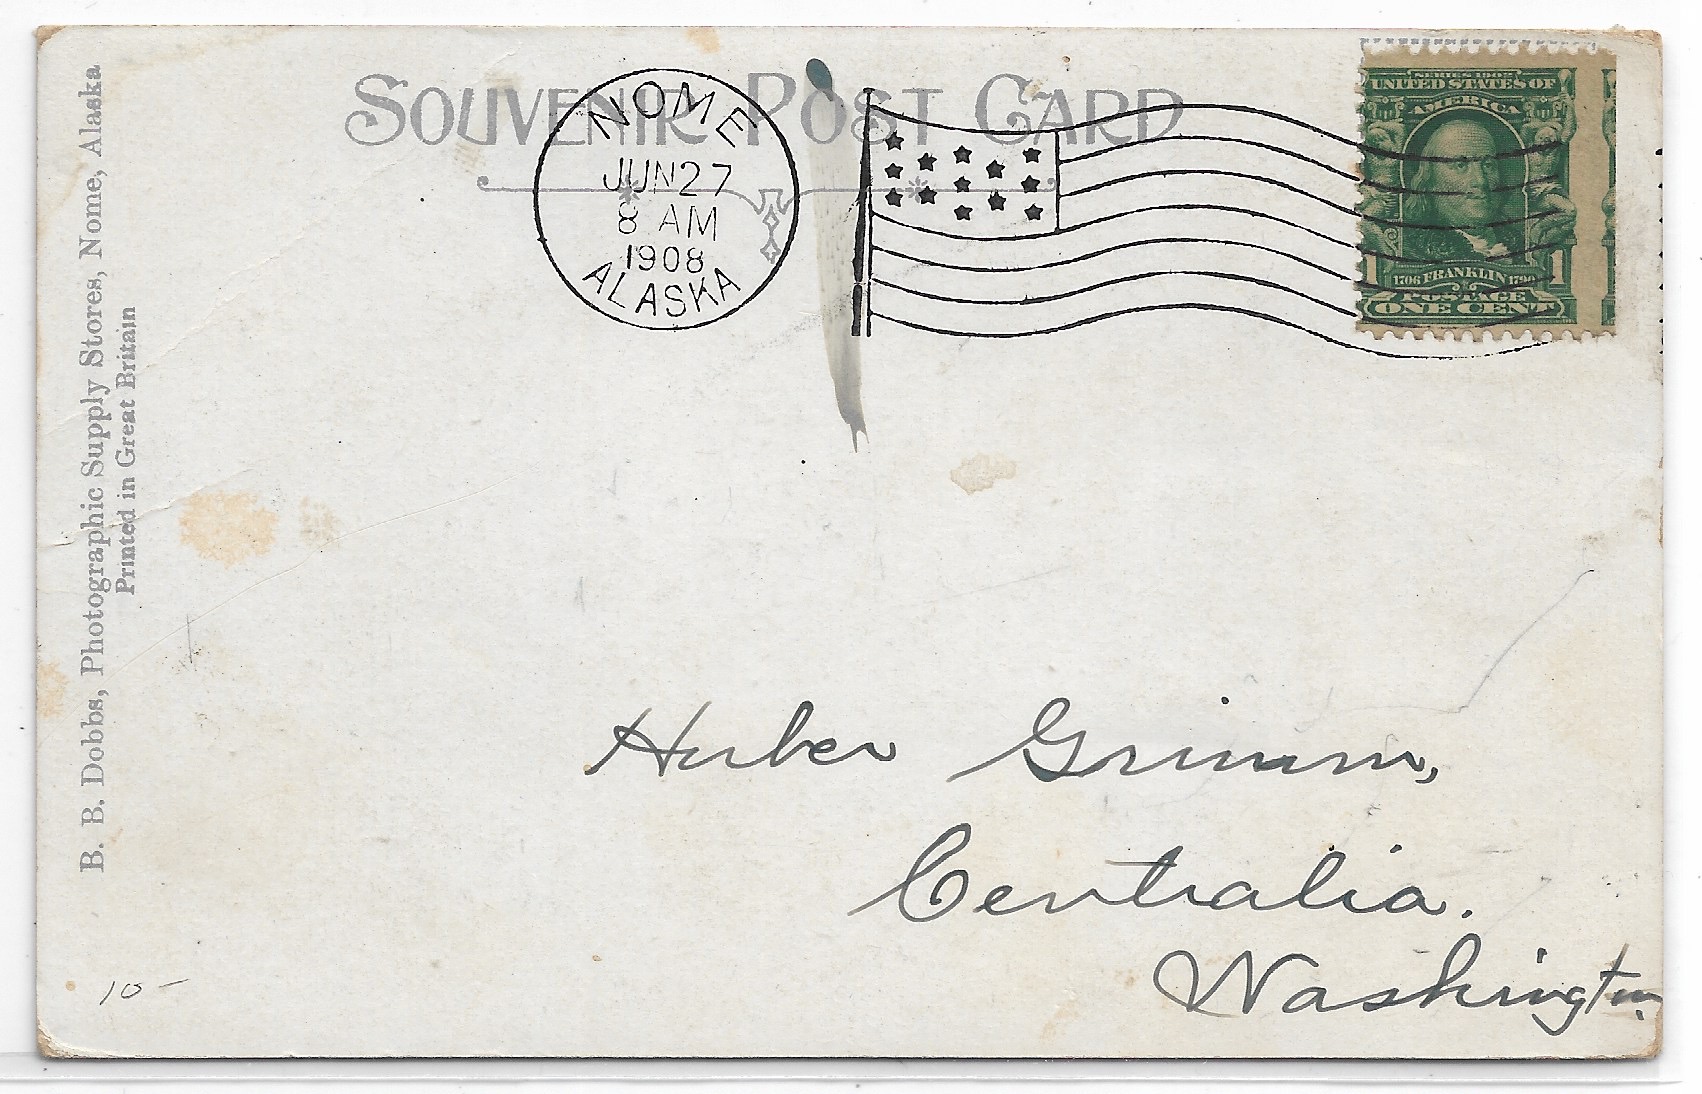 SOUVENIR POST CARD
NOME
JUN 27
8 AM
1908
ALASKA
SERIES 1902
UNITED STATES OF
AMERICA
1 1706 FRANKLIN 1790 1
POSTAGE
ONE CENT
B. B. Dobbs, Photographic Supply Stores, Nome, Alaska
Printed in Great Britain
Huber Grimm,
Centralia.
Washington.
10 –